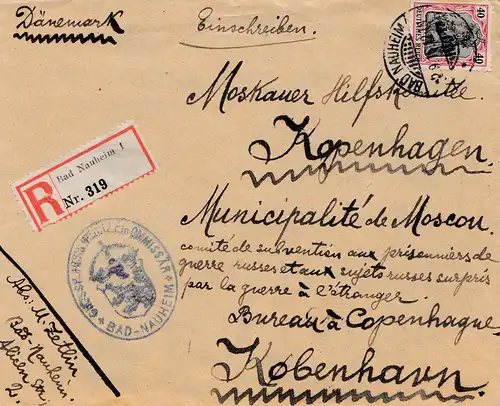 Dänemark
Einschreiben.
40 40
DEUTSCHES REICH
BAD NAUHEIM
Moskauer Hilfskomitée
Kopenhagen.
R
Bad Nauheim 1
Nr. 319
Municipalité de Moscou.
comité de subvention aux prisonniers de
guerre russes et aux sujets russes surpris
par la guerre à l'étranger.
Bureau à Copenhague
København.
GROSSH. HESS. POLIZEI
BAD-NAUHEIM
Abs: M. Zetlin
Bad Nauheim.
Alicen str.
2.